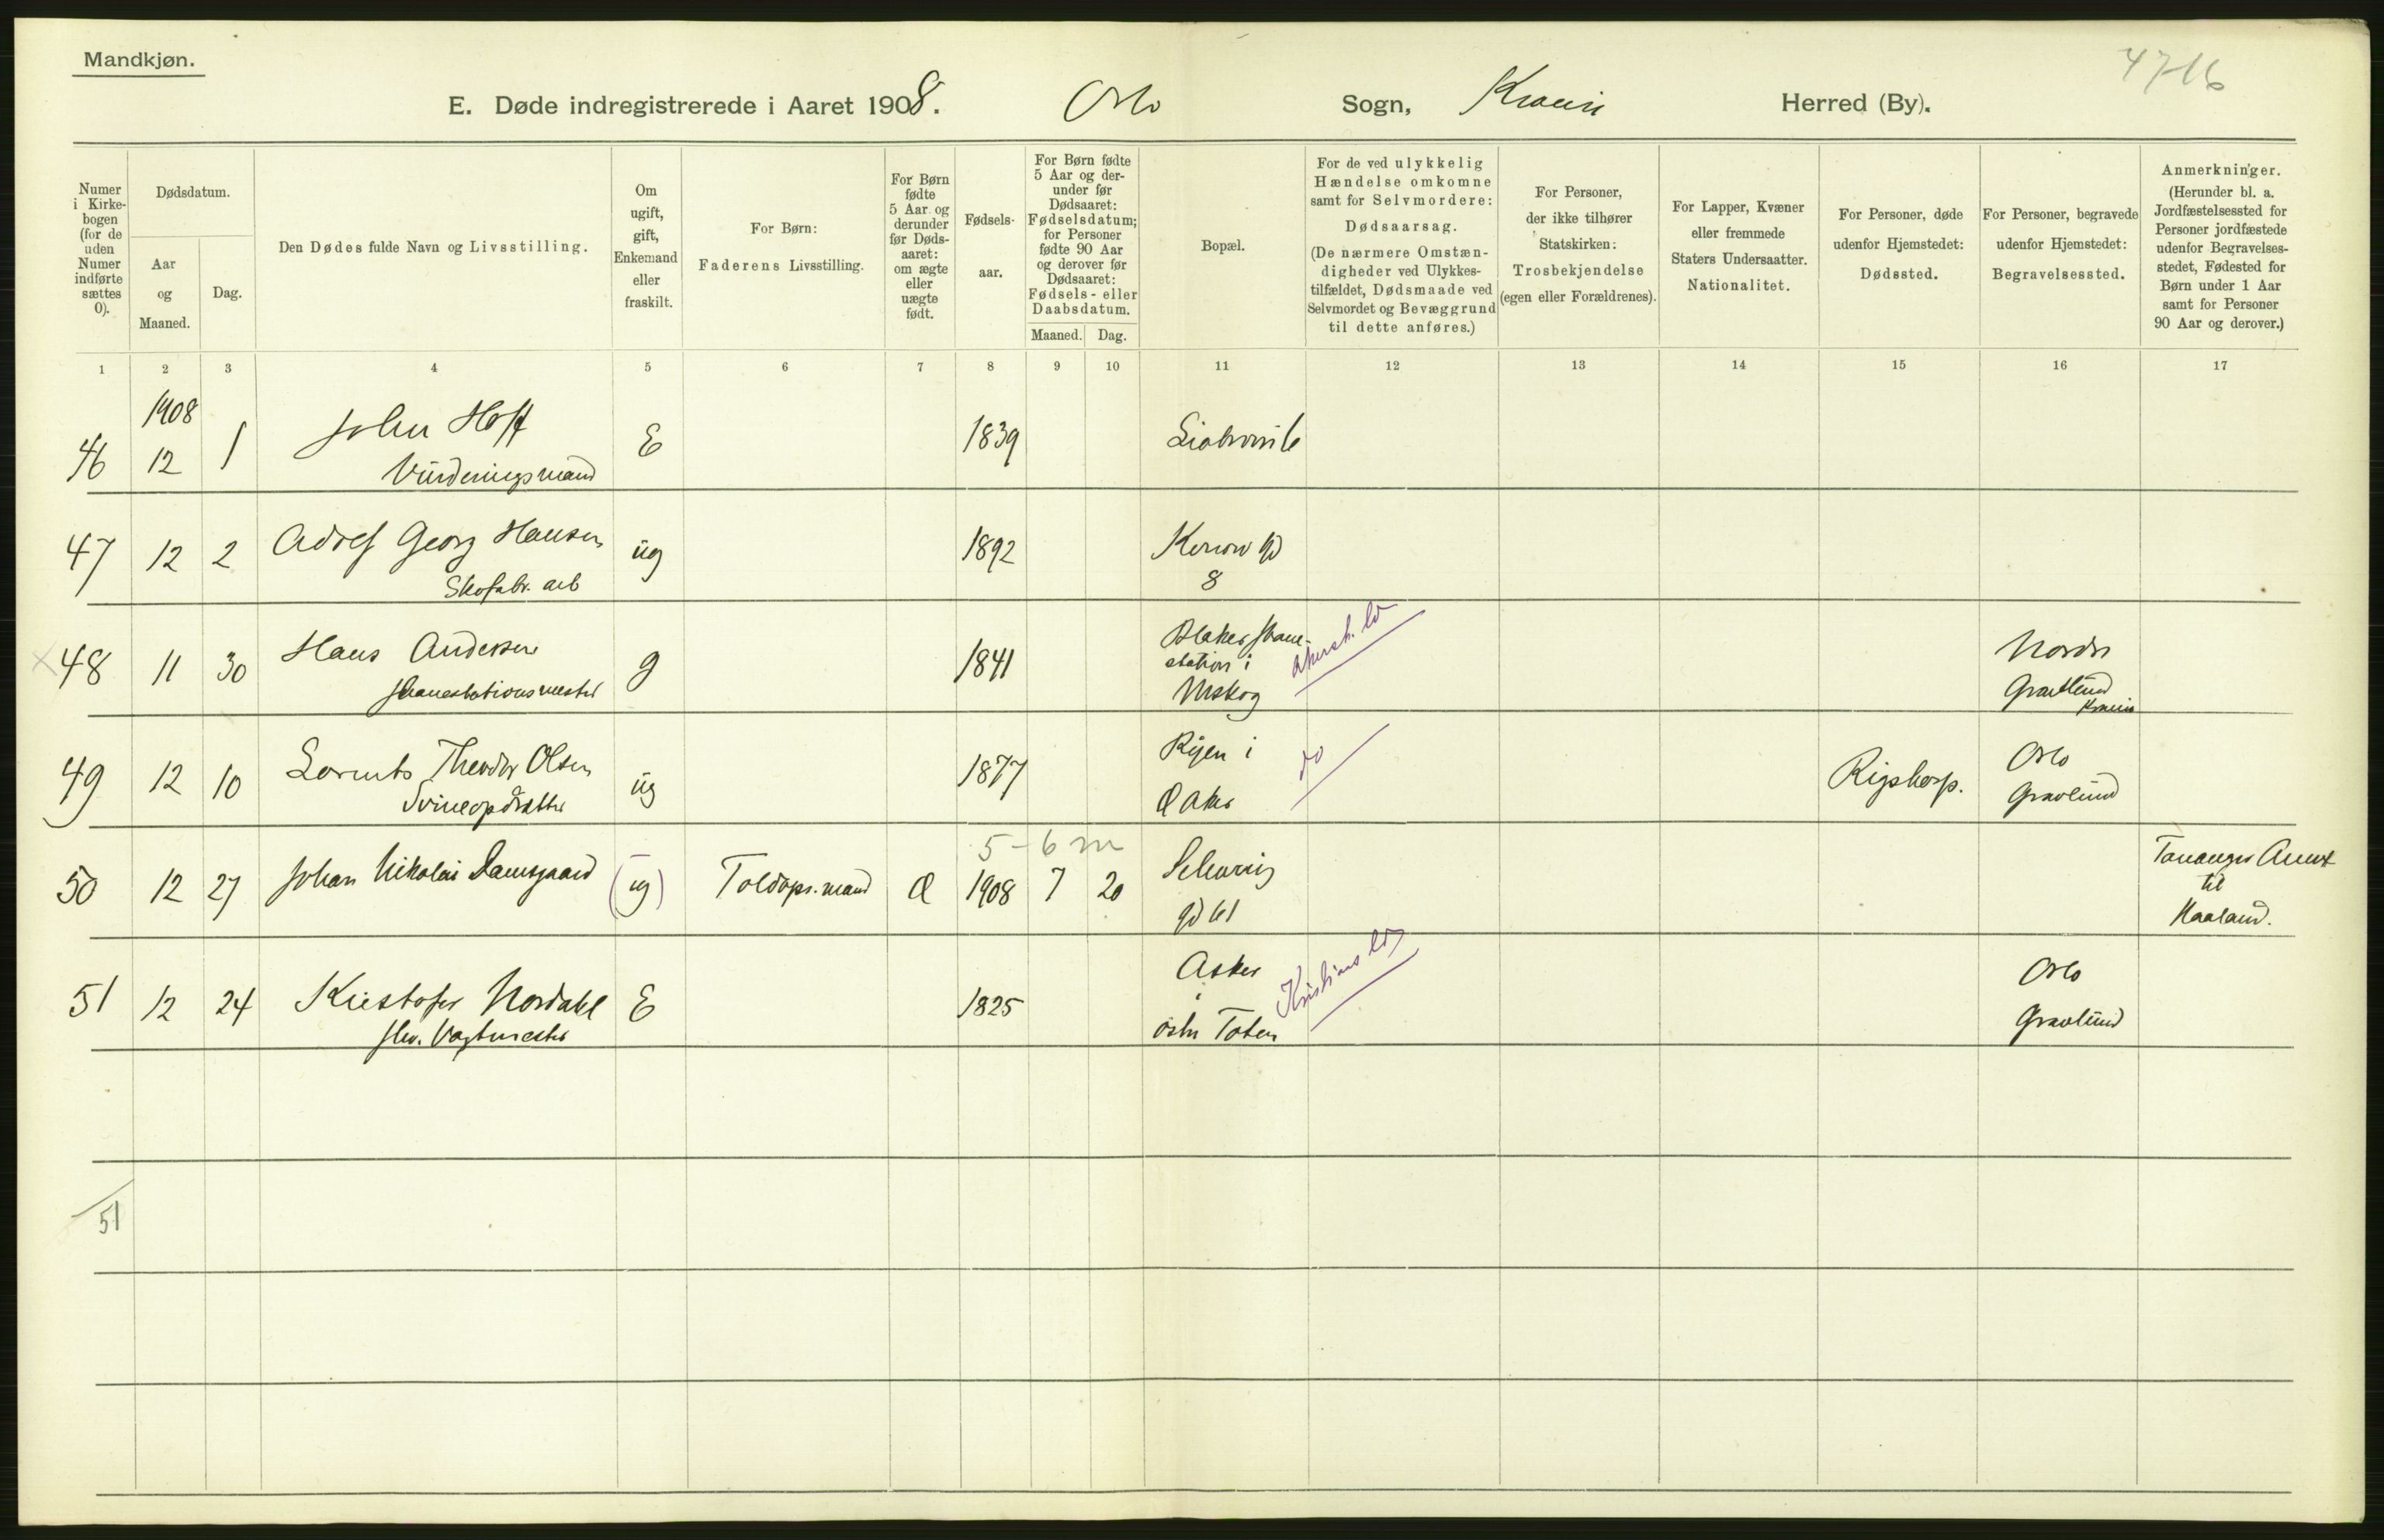 Mandkjøn.
E. Døde indregistrerede i Aaret 1908. Oslo Sogn, Krania Herred (By).
4716
Numer i Kirkebogen (for de uden Numer indførte sættes 0).
Dødsdatum.
Aar og Maaned.
Dag.
Den Dødes fulde Navn og Livsstilling.
Om ugift, gift, Enkemand eller fraskilt.
For Børn: Faderens Livsstilling.
For Børn fødte 5 Aar og derunder før Dødsaaret: om ægte eller uægte født.
Fødselsaar.
For Børn fødte 5 Aar og derunder før Dødsaaret: Fødselsdatum; for Personer fødte 90 Aar og derover før Dødsaaret: Fødsels- eller Daabsdatum.
Maaned. Dag.
Bopæl.
For de ved ulykkelig Hændelse omkomne samt for Selvmordere: Dødsaarsag. (De nærmere Omstændigheder ved Ulykkestilfældet, Dødsmaade ved Selvmordet og Bevæggrund til dette anføres.)
For Personer, der ikke tilhører Statskirken: Trosbekjendelse (egen eller Forældrenes).
For Lapper, Kvæner eller fremmede Staters Undersaatter. Nationalitet.
For Personer, døde udenfor Hjemstedet: Dødssted.
For Personer, begravede udenfor Hjemstedet: Begravelsessted.
Anmerkninger. (Herunder bl. a. Jordfæstelsessted for Personer jordfæstede udenfor Begravelsesstedet, Fødested for Børn under 1 Aar samt for Personer 90 Aar og derover.)
1 2 3 4 5 6 7 8 9 10 11 12 13 14 15 16 17
1908
46 12 1 John Hoff E 1839
Vürderingsmand
47 12 2 Adolf Georg Hansen üg 1892 gd
Skofabr. arb 8
48 11 30 Hans Andersen g 1841 Blaker Akersh.
station i Nordre
Gravlund
Krania
49 12 10 Lorents Theodor Olsen üg 1877 Ryen i do Rigshosp. Oslo
Svineopdrætter Ø Aker Gravlund
5-6 m
50 12 27 Johan Nikolai Damsgaard (üg) Toldops.mand Æ 1908 7 20 Schweig Tananger Annex
gd 61 til
Haaland.
51 12 24 Kristofer Nordahl E 1825 Asker Kristians Oslo
fhv. Vagtmester i
østre Toten Gravlund
51